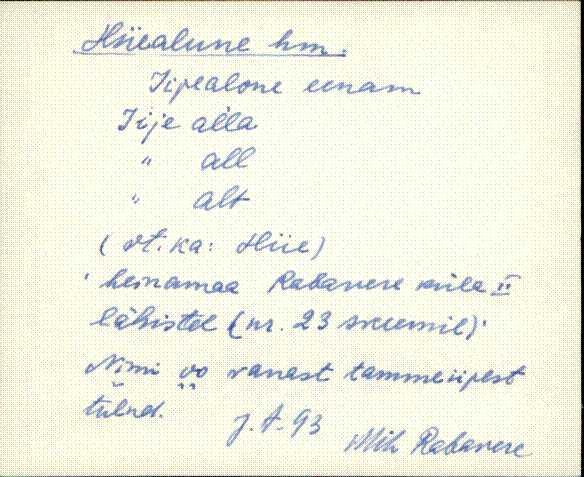 Hiiealune hm.
Iijealone eenam
Iije alla
" all
" alt
(vt. ka: Hiie)
' heinamaa Rabavere küla II
lähistel (nr. 23 skeemil)'
Nimi vo vanast tammeiijest
tulnd.
J. A. 93
Mih Rabavere